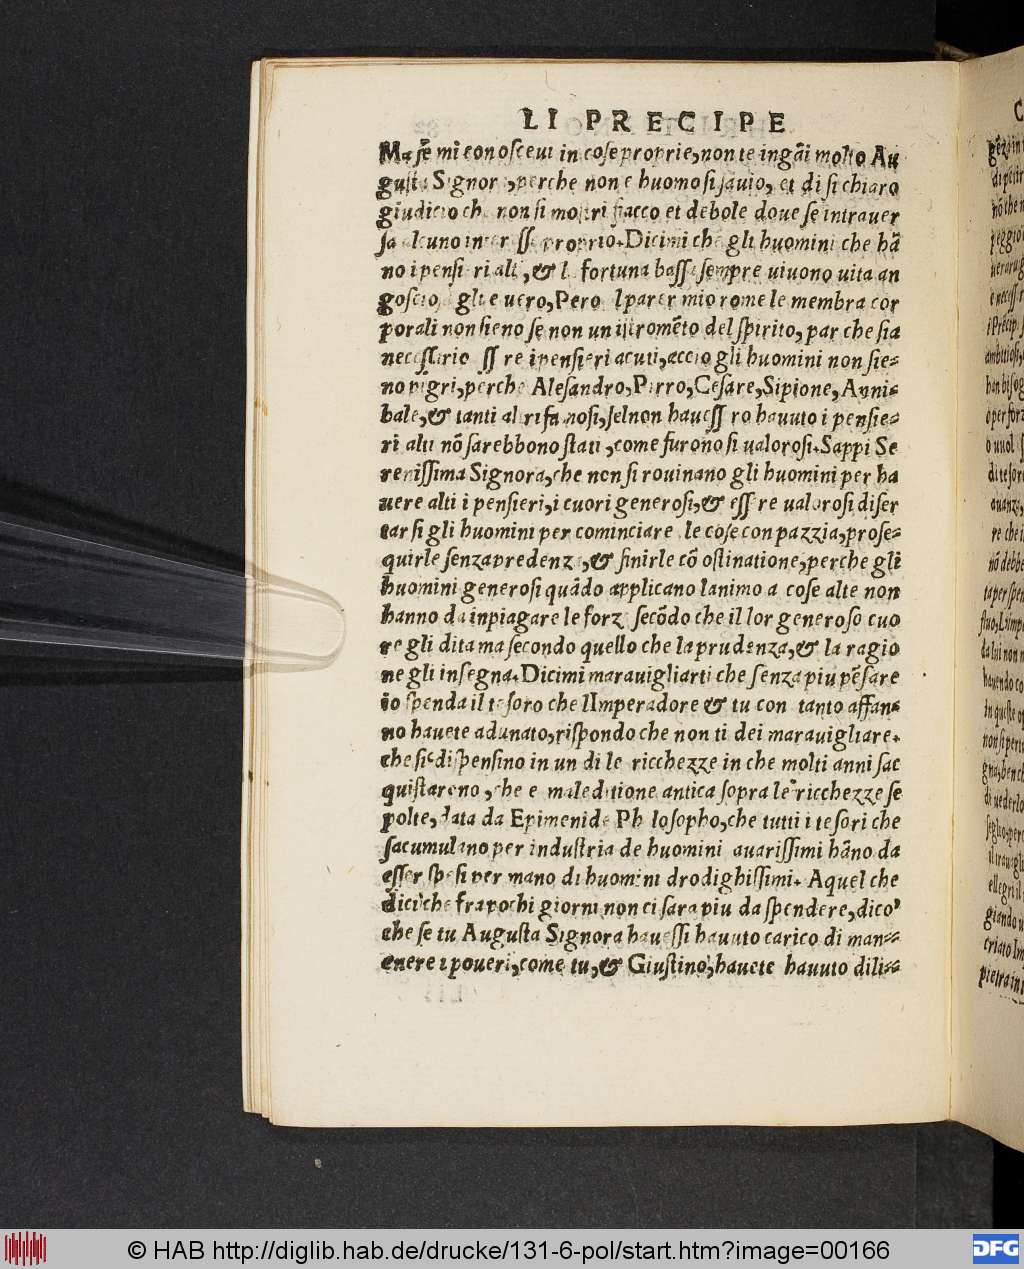 LI PRECIPE
Ma sẽ mi conoscevi in cose proprie, non te ingãi molto Au
gusta Signora, perche non e huomo si sauio, et di si chiaro
giudicio che non si mostri fiacco et debole doue se intrauer
sa alcuno interesse proprio. Dicimi che gli huomini che hã
no i pensieri alti, & la fortuna bassa sempre uiuono uita an
goscio, gli e uero, Pero l parer mio rome le membra cor
porali non sieno se non un istromẽto del spirito, par che sia
necessario ess re i pensieri acuti, accio gli huomini non sie=
no pigri, perche Alesandro, Pirro, Cesare, Sipione, Anni=
bale, & tanti altri famosi, sel non hauess ro hauuto i pensie=
ri alti nõ sarebbono stati, come furono si ualorosi. Sappi Se
renissima Signora, che non si rouinano gli huomini per ha
uere alti i pensieri, i cuori generosi, & ess re ualorosi diser
tar si gli huomini per cominciare le cose con pazzia, prose=
quirle senza predenza, & finirle cõ ostinatione, perche gli
huomini generosi quãdo applicano lanimo a cose alte non
hanno da inpiagare le forz secõdo che il lor generoso cuo
re gli dita ma secondo quello che la prudenza, & la ragio
ne gli insegna. Dicimi marauigliarti che senza piu pẽsare
io spenda il tesoro che lImperadore & tu con tanto affan=
no hauete adunato, rispondo che non ti dei marauigliare.
che si dispensino in un di le ricchezze in che molti anni sac
quistareno, che e maleditione antica sopra le ricchezze se
polte, data da Epimenide Philosopho, che tutti i tesori che
sacumulano per industria de huomini auarissimi hãno da
esser spesi per mano di huomini drodighissimi. Aquel che
dici che fra pochi giorni non ci sara piu da spendere, dico
che se tu Augusta Signora hauessi hauuto carico di man=
enere i poueri, come tu, & Giustino, hauete hauuto dili=
© HAB http://diglib.hab.de/drucke/131-6-pol/start.htm?image=00166
DFG